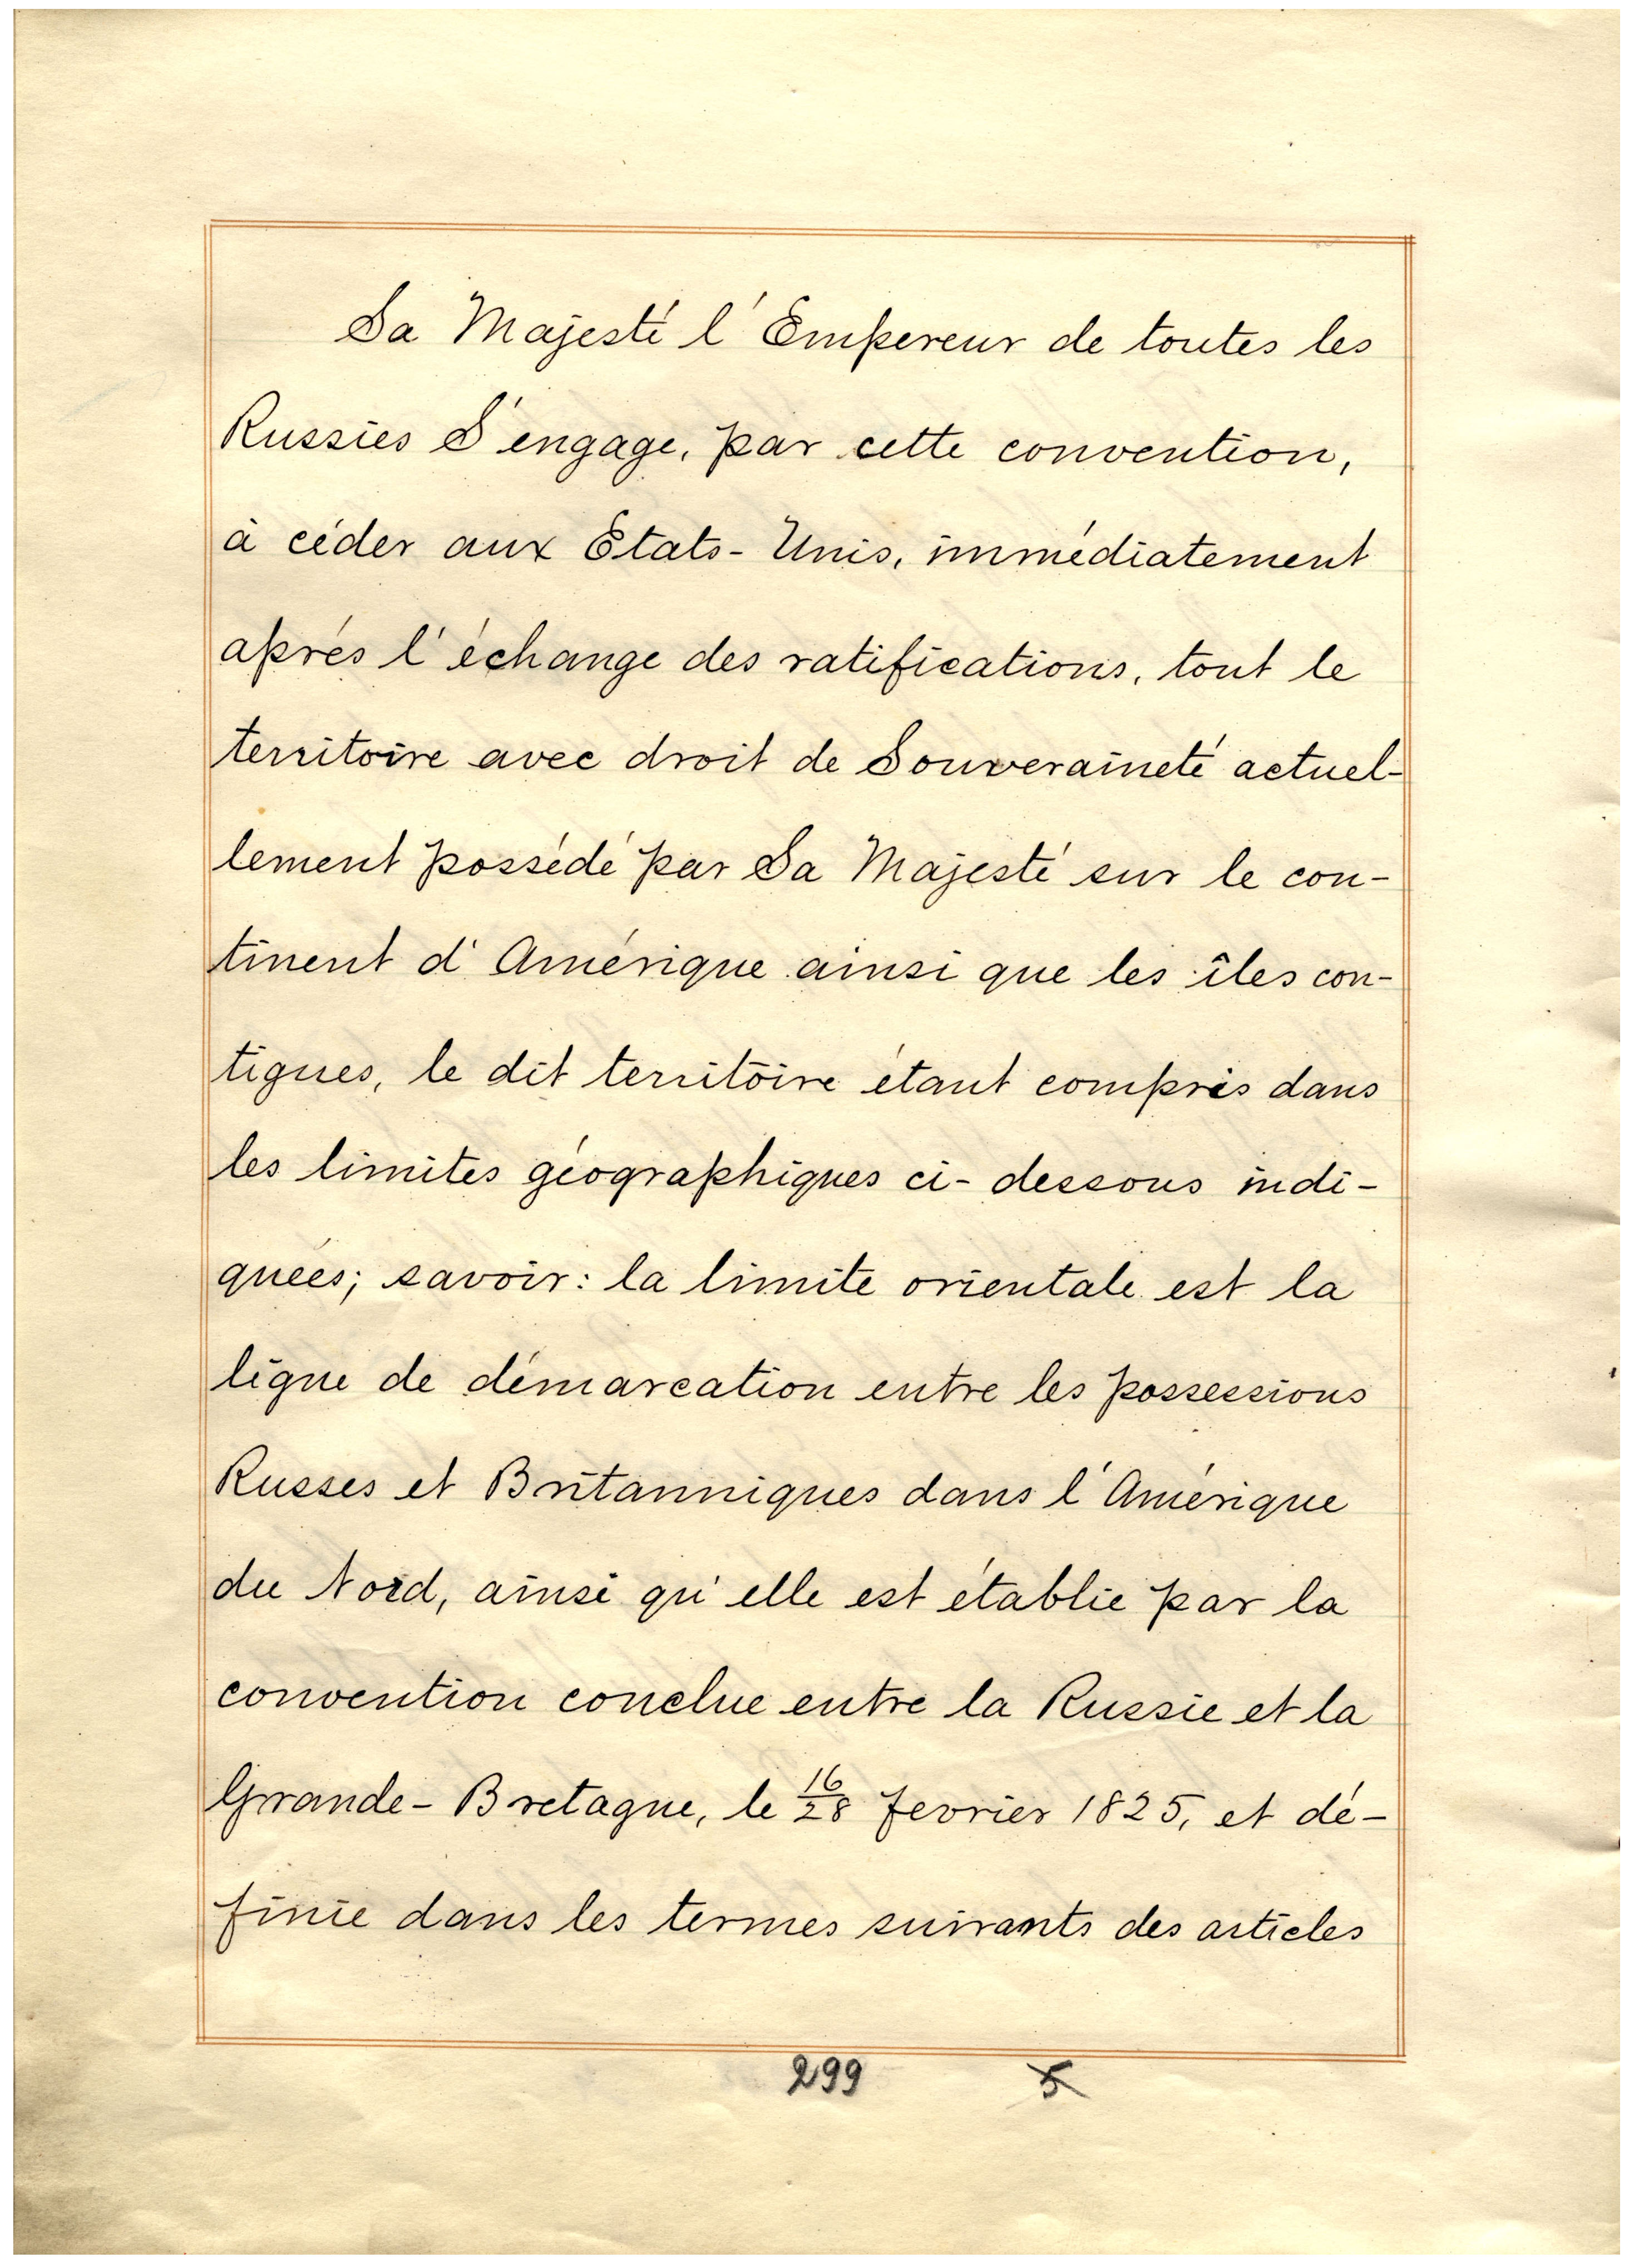 Sa Majesté l'Empereur de toutes les
Russies S'engage, par cette convention,
à céder aux Etats-Unis, immédiatement
après l'échange des ratifications, tout le
territoire avec droit de Souveraineté actuel-
lement possédé par Sa Majesté sur le con-
tinent d'Amérique ainsi que les îles con-
tigues, le dit territoire étant compris dans
les limites géographiques ci-dessous indi-
quées; savoir: la limite orientale est la
ligne de démarcation entre les possessions
Russes et Britanniques dans l'Amérique
du Nord, ainsi qu'elle est établie par la
convention conclue entre la Russie et la
Grande-Bretagne, le 16/28 fevrier 1825, et dé-
finie dans les termes suivants des articles
299 5